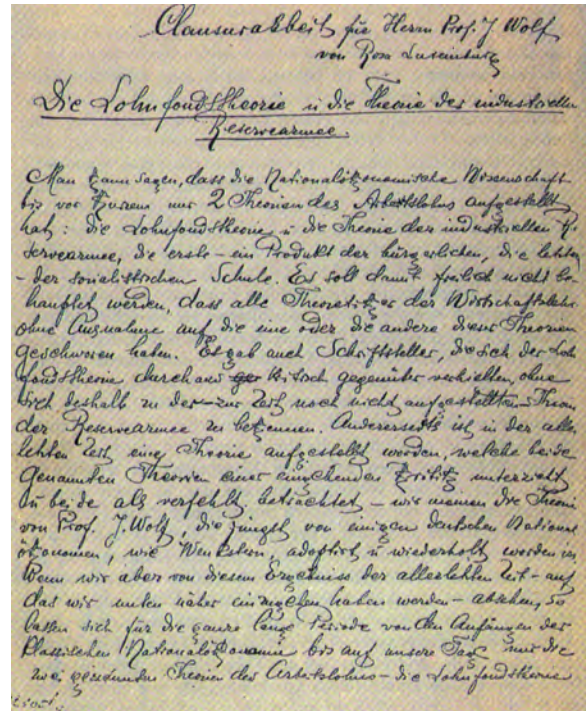 Clausurarbeit für Herrn Prof. J Wolf
von Rosa Luxemburg
Die Lohnfondstheorie u die Theorie der industriellen
Reservearmee.
Man kann sagen, dass die Nationalökonomische Wissenschaft
bis vor Kurzem nur 2 Theorien des Arbeitslohns aufgestellt
hat: die Lohnfondstheorie u die Theorie der industriellen Re
servearmee, die erste – ein Produkt der bürgerlichen, die letzte
– der sozialistischen Schule. Es soll damit freilich nicht be
hauptet werden, dass alle Theoretiker der Wirtschaftslehre
ohne Ausnahme auf die eine oder die andere dieser Theorien
geschworen haben. Es gab auch Schriftsteller, die sich der Loh
fondstheorie durchaus kritisch gegenüber verhielten, ohne
sich deshalb zu der – zur Zeit noch nicht aufgestellten – Theorie
der Reservearmee zu bekennen. Andererseits ist in der aller
letzten Zeit eine Theorie aufgestellt worden, welche beide
genannten Theorien einer eingehenden Kritik unterzieht
u beide als verfehlt betrachtet – wir meinen die Theorie
von Prof. J. Wolf, die jüngst von einigen deutschen National
ökonomen, wie Wenckstern, adoptirt u wiederholt worden ist
Wenn wir aber von diesem Ergebniss der allerletzten Zeit – auf
das wir unten näher einzugehen haben werden – absehen, so
lassen sich für die ganze lange Periode von den Anfängen der
klassischen Nationalökonomie bis auf unsere Tage nur die
zwei genannten Theorien des Arbeitslohns – die Lohnfondstheorie